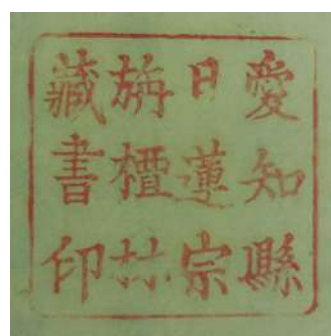 愛知縣
日蓮宗
旃檀林
藏書印